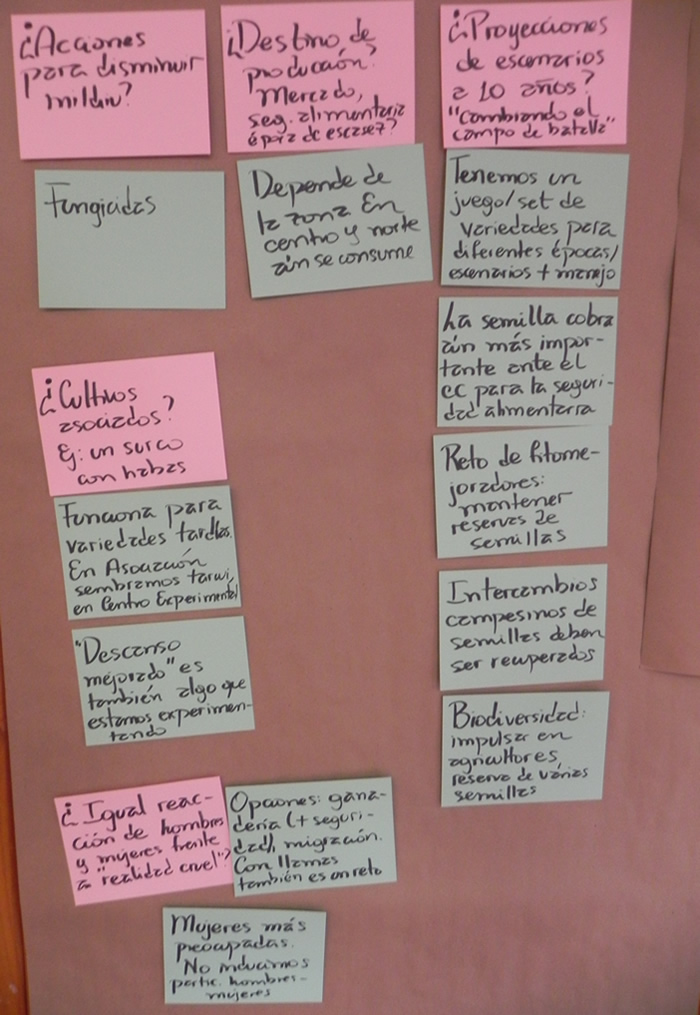 ¿Acciones
para disminuir
mildiu?
Fungicidas
¿Cultivos
asociados?
Ej: un surco
con habas
Funciona para
variedades tardías.
En Asociación
sembramos tarwi,
en Centro Experimental
"Descanso
mejorado" es
también algo que
estamos experimen-
tando
¿Igual reac-
ción de hombres
y mujeres frente
a "realidad cruel"?
Opciones: gana-
dería (+ seguri-
dad), migración.
Con llamas
también es un reto
Mujeres más
preocupadas.
No inducimos
partic. hombres-
mujeres
¿Destino de
producción?
Mercado,
seg. alimentaria
época de escasez?
Depende de
la zona En
centro y norte
aún se consume
¿Proyecciones
de escenarios
a 10 años?
"Cambiando el
campo de batalla"
Tenemos un
juego/set de
variedades para
diferentes épocas/
escenarios + manejo
La semilla cobra
aún más impor-
tante ante el
CC para la seguri-
dad alimentaria
Reto de fitome-
joradores:
mantener
reservas de
semillas
Intercambios
campesinos de
semillas deben
ser recuperados
Biodiversidad:
impulsar en
agricultores
reserva de varias
semillas